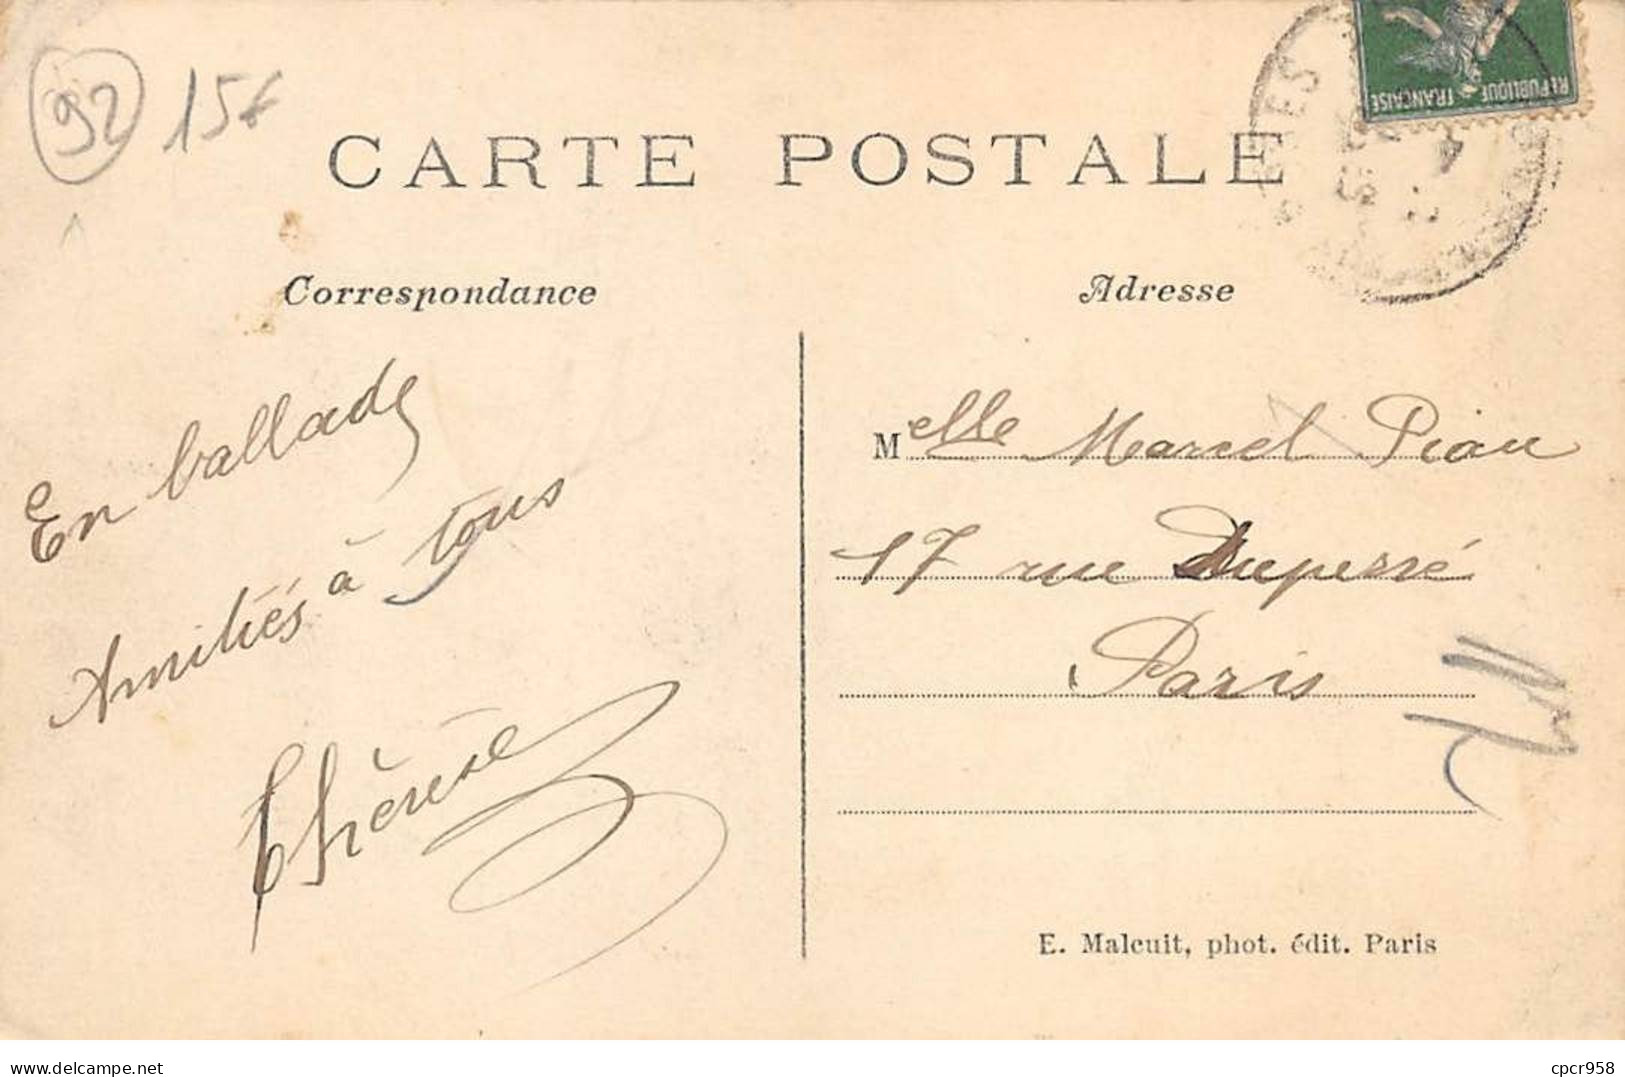 92
15€
CARTE POSTALE
RÉPUBLIQUE FRANÇAISE
Correspondance
Adresse
En ballade
Amitiés à tous
Thérèse
Melle Marcel Piau
17 rue Duperré
Paris
E. Malcuit, phot. édit. Paris
www.delcampe.net
cpcr958